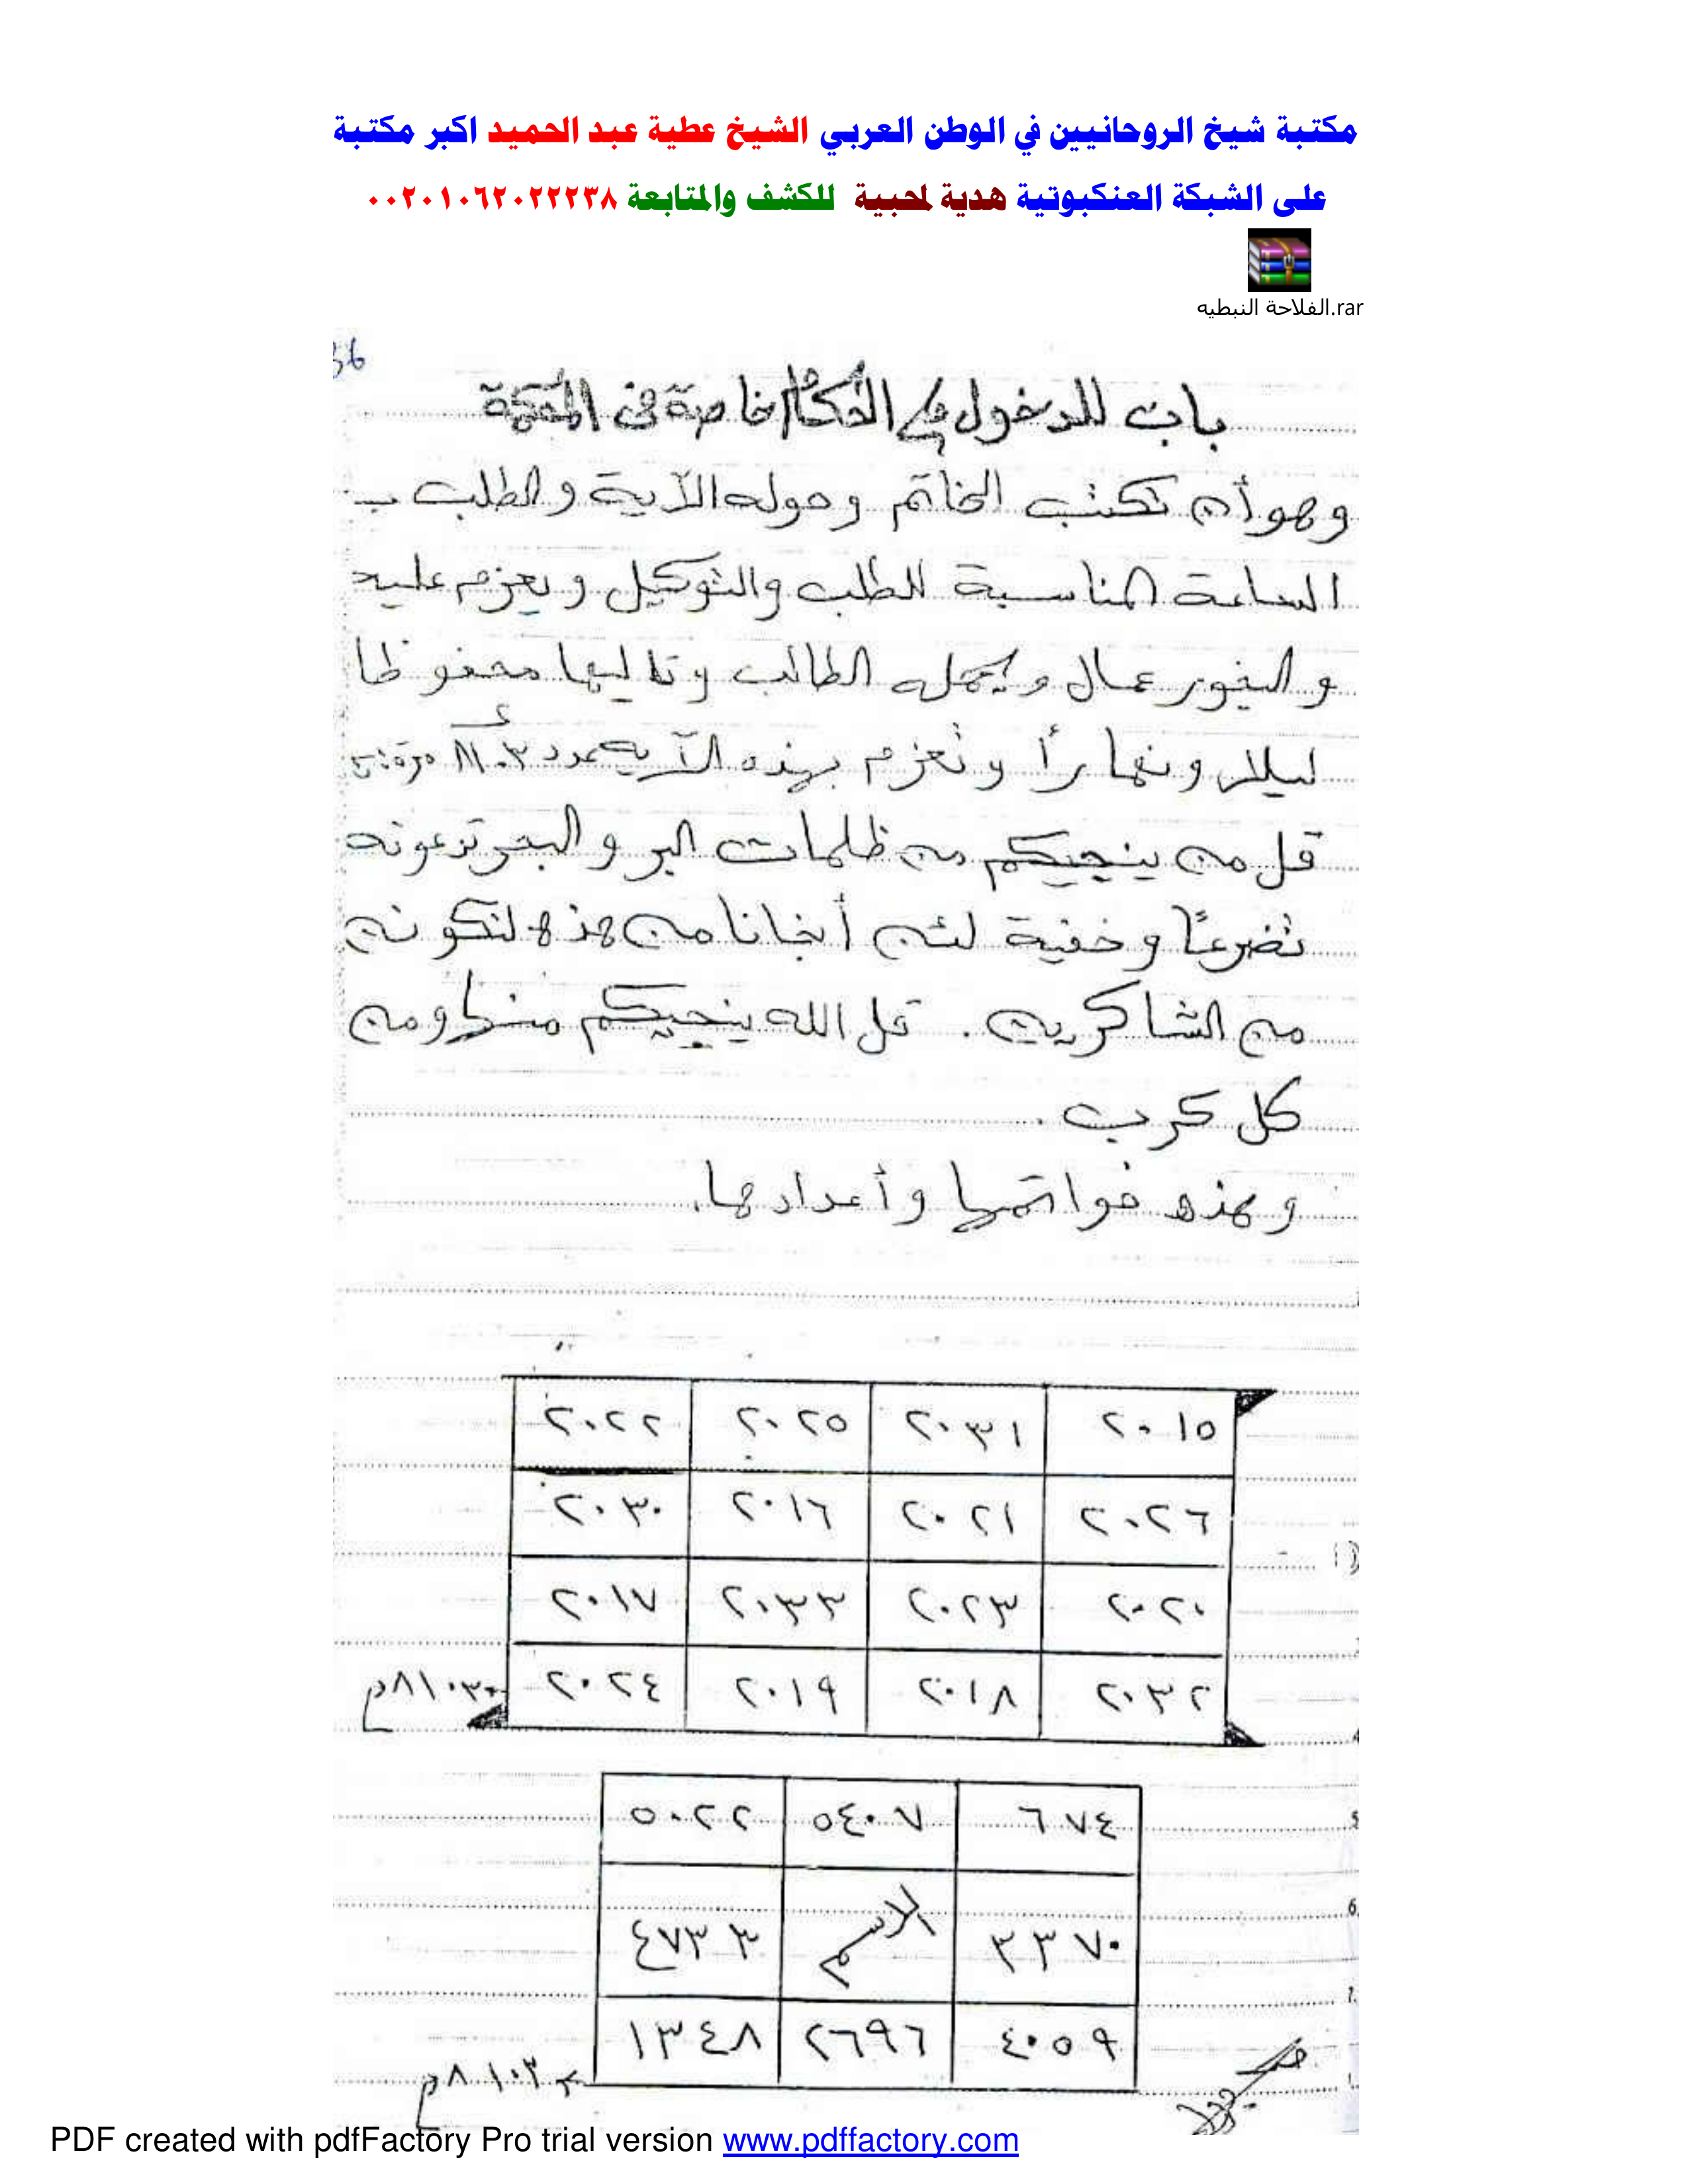 مكتبة شيخ الروحانيين في الوطن العربي الشيخ عطية عبد الحميد اكبر مكتبة
على الشبكة العنكبوتية هدية لمحبية للكشف والمتابعة ٠٠٢٠١٠٦٢٠٢٢٢٣٨
الفلاحة النبطيه.rar
36
باب للدخول على الحكام خاصة فى المحكمة
وهو أن تكتب الخاتم وحوله الآية والطلب ب
الساعة المناسبة للطلب والتوكيل و يعزم عليه
و البخور عمال و يحمله الطالب وتاليها محفوظا
ليلا ونهاراً و تعزم بهذه الآية عدد ٨١٠٣ مرة
قل من ينجيكم من ظلمات البر و البحر تدعونه
تضرعاً وخفية لئن أنجانا من هذه لنكونن
من الشاكرين . قل الله ينجيكم منها ومن
كل كرب .
وهذه خواتمها وأعدادها.
٢٠١٥ ٢٠٣١ ٢٠٢٥ ٢٠٢٢
٢٠٢٦ ٢٠٢١ ٢٠١٦ ٢٠٣٠
٢٠٢٠ ٢٠٢٣ ٢٠٣٣ ٢٠١٧
٢٠٣٢ ٢٠١٨ ٢٠١٩ ٢٠٢٤ ٨١٠٣
٦٧٤ ٥٤٠٧ ٥٠٢٢
٣٣٧٠ الاسم ٤٧٣٣
٤٠٥٩ ٢٦٩٦ ١٣٤٨
٨١٠٣
PDF created with pdfFactory Pro trial version www.pdffactory.com